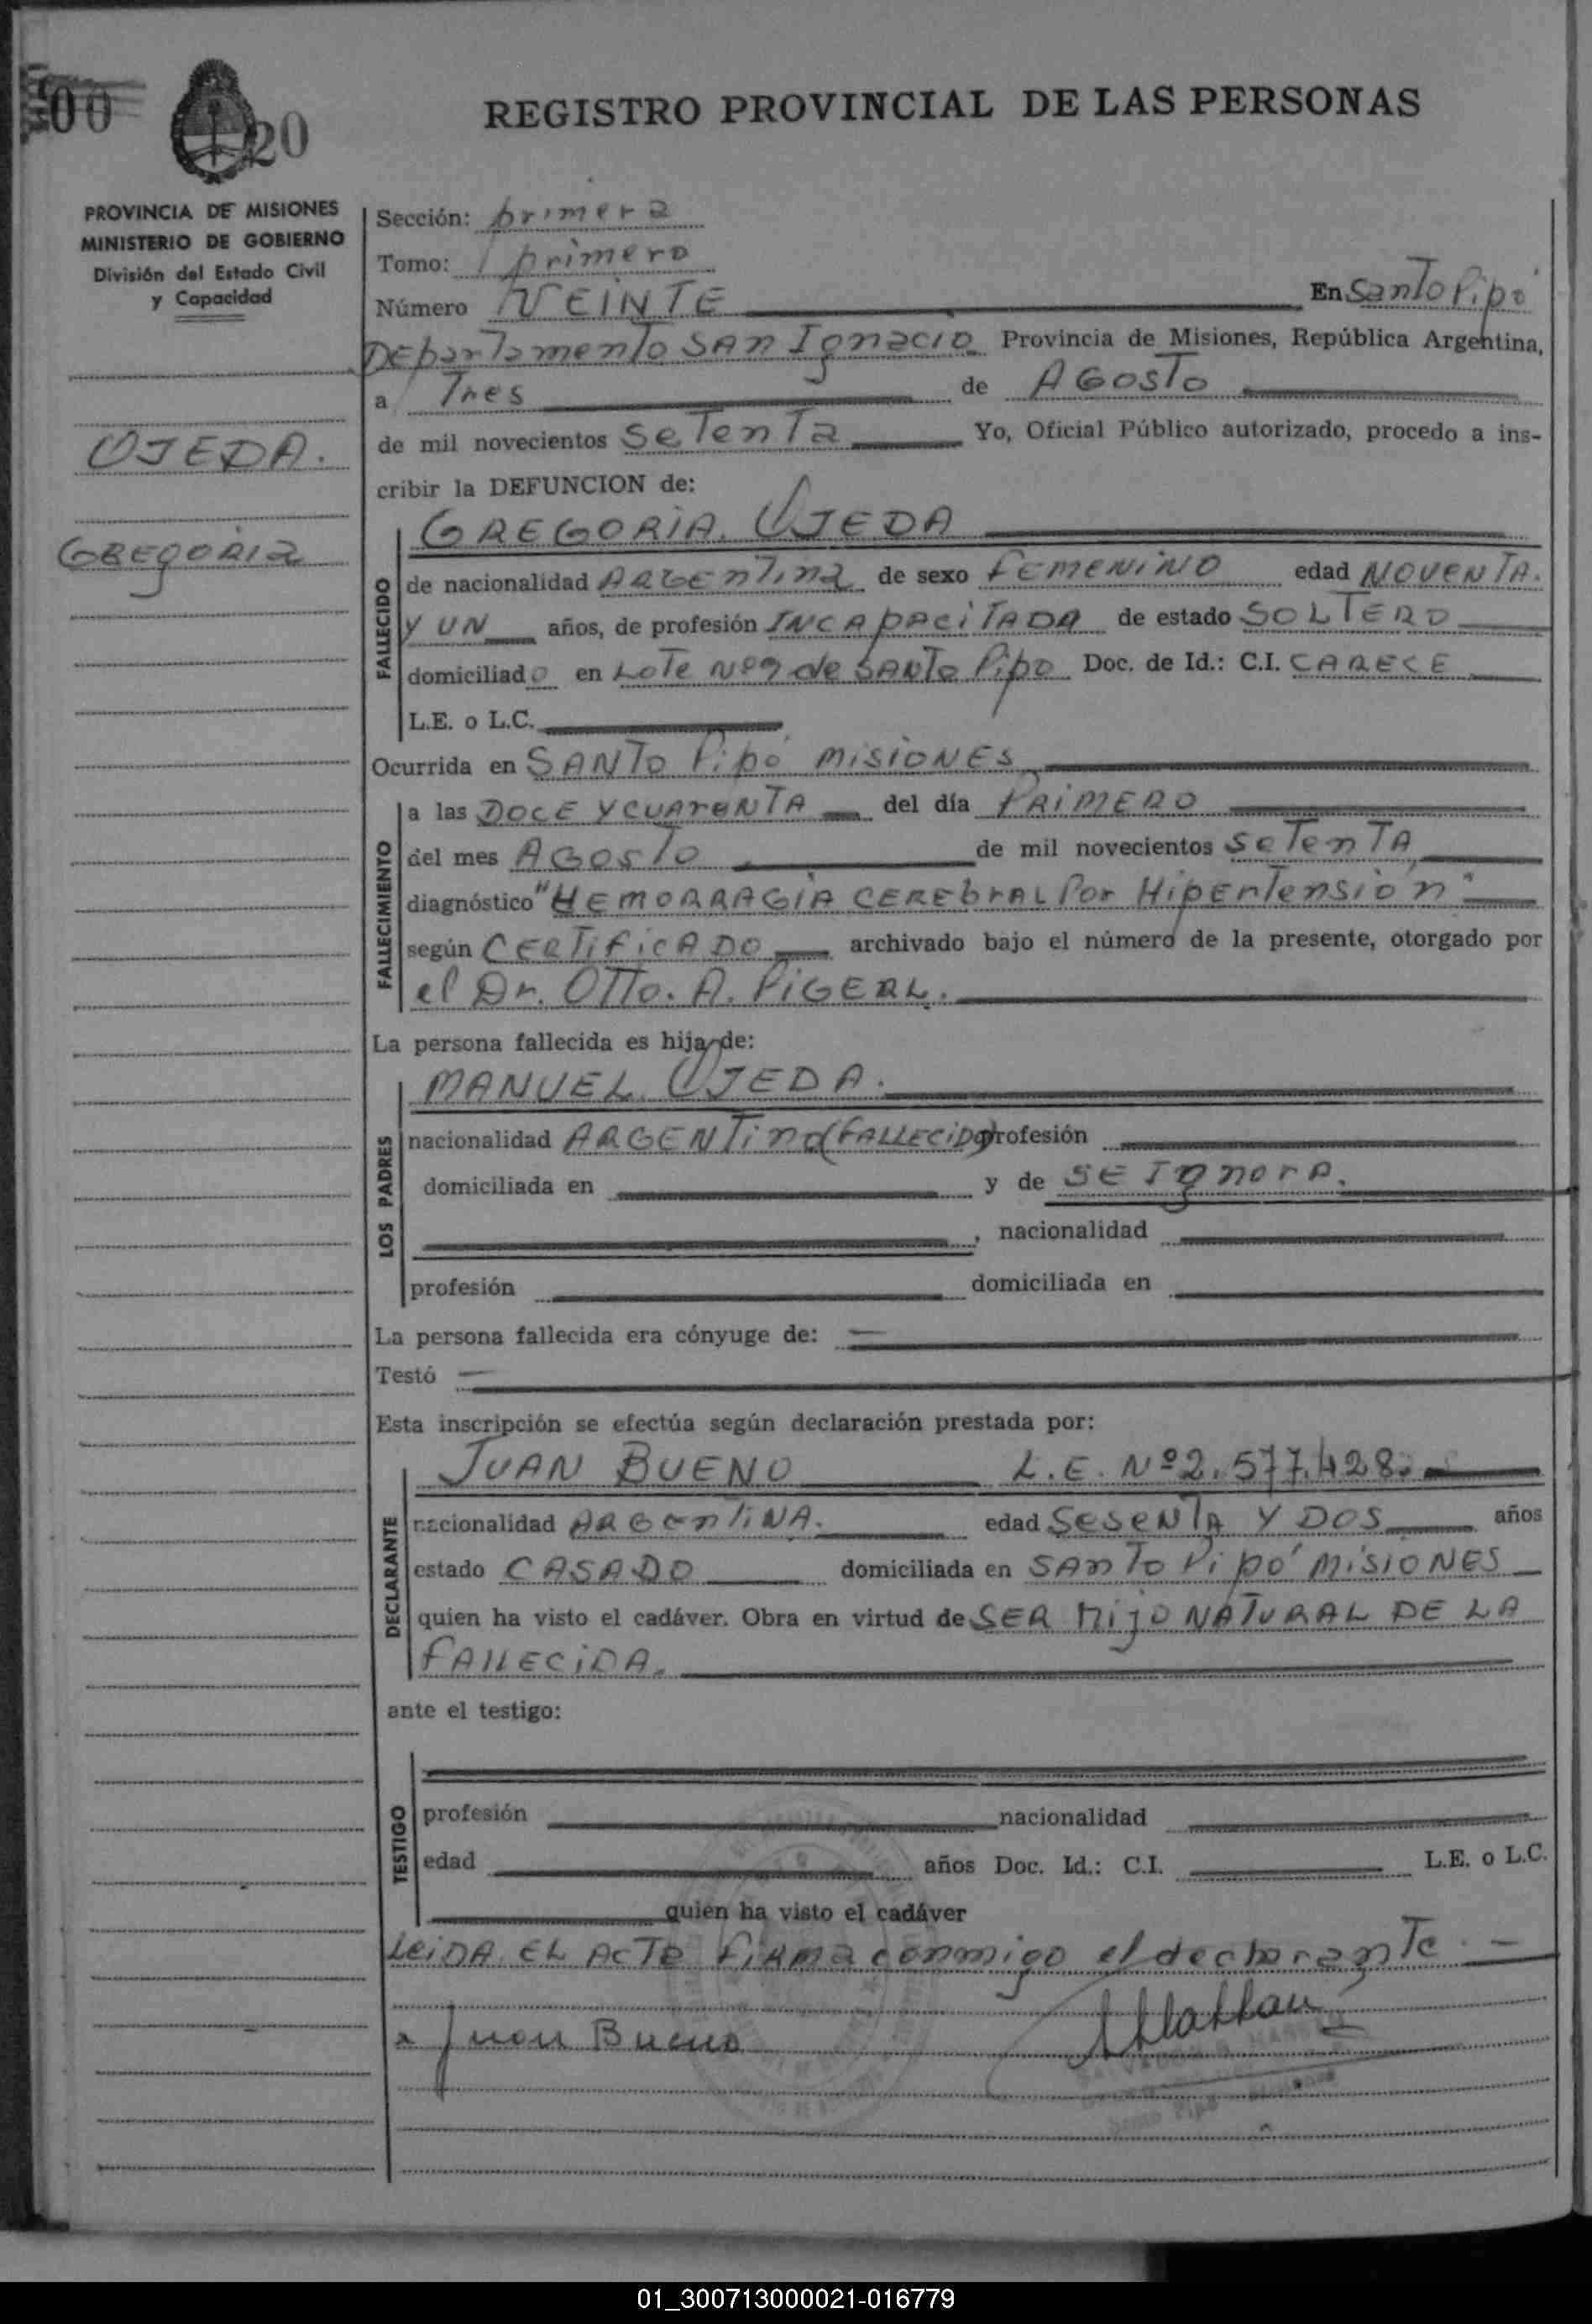 00
20
REGISTRO PROVINCIAL DE LAS PERSONAS
PROVINCIA DE MISIONES
MINISTERIO DE GOBIERNO
División del Estado Civil
y Capacidad
OJEDA.
GREgORIa
Sección: primera
Tomo: primero
Número VEINTE En Santo Pipó
DEpartamento SAn Ignacio Provincia de Misiones, República Argentina,
a Tres de AGosTo
de mil novecientos SeTenTa Yo, Oficial Público autorizado, procedo a ins-
cribir la DEFUNCION de:
GREGORIA. OJEDA
FALLECIDO
de nacionalidad ARGEnTina de sexo FEMENINO edad NOVENTA.
Y UN años, de profesión INCApACiTADA de estado SOLTERO
domiciliado en LoTe Nº9 de SANTo Pipo Doc. de Id.: C.I. CARECE
L.E. o L.C.
Ocurrida en SANTo Pipó MISIONES
FALLECIMIENTO
a las DOCE Y CUArENTA del día PRIMERO
del mes AGosTo de mil novecientos SeTenTA
diagnóstico "HEMORRAGIA CEREbrAL Por HipErTensión"
según CERTificADO archivado bajo el número de la presente, otorgado por
el Dr. OTTo. A. PIGERL.
La persona fallecida es hija de:
LOS PADRES
MANUEL OJEDA.
nacionalidad ARGENTino (FALLECIDO) profesión
domiciliada en y de SE IgnorA.
, nacionalidad
profesión domiciliada en
La persona fallecida era cónyuge de:
Testó
Esta inscripción se efectúa según declaración prestada por:
DECLARANTE
JUAN BUENO L.E. Nº 2.577.428.
nacionalidad ARGenTiNA. edad SeSENTA Y DOS años
estado CASADO domiciliada en SAnTo Pipó MISIONES
quien ha visto el cadáver. Obra en virtud de SER HijO NATURAL DE LA
FALLECIDA.
ante el testigo:
TESTIGO
profesión nacionalidad
edad años Doc. Id.: C.I. L.E. o L.C.
quien ha visto el cadáver
LEiDA EL ACTA FIRMA conmigo el declaranTe.
Juan Bueno
01_300713000021-016779